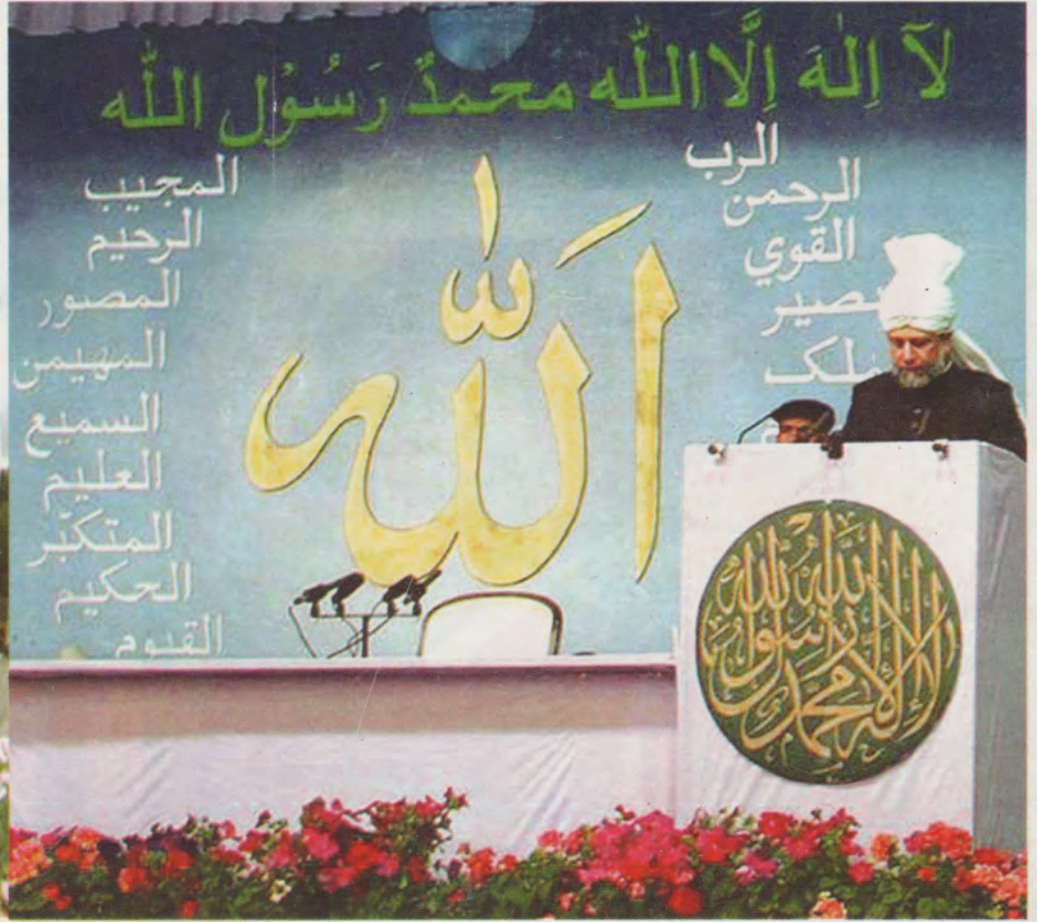 لآ اِلٰهَ اِلَّا اللّٰه محمدٌ رَسُوْل اللّٰه
الرب
الرحمن
القوي
نصير
ملك
الله
المجيب
الرحيم
المصور
المهيمن
السميع
العليم
المتكبّر
الحكيم
القيوم
لا إله إلا الله محمد رسول الله